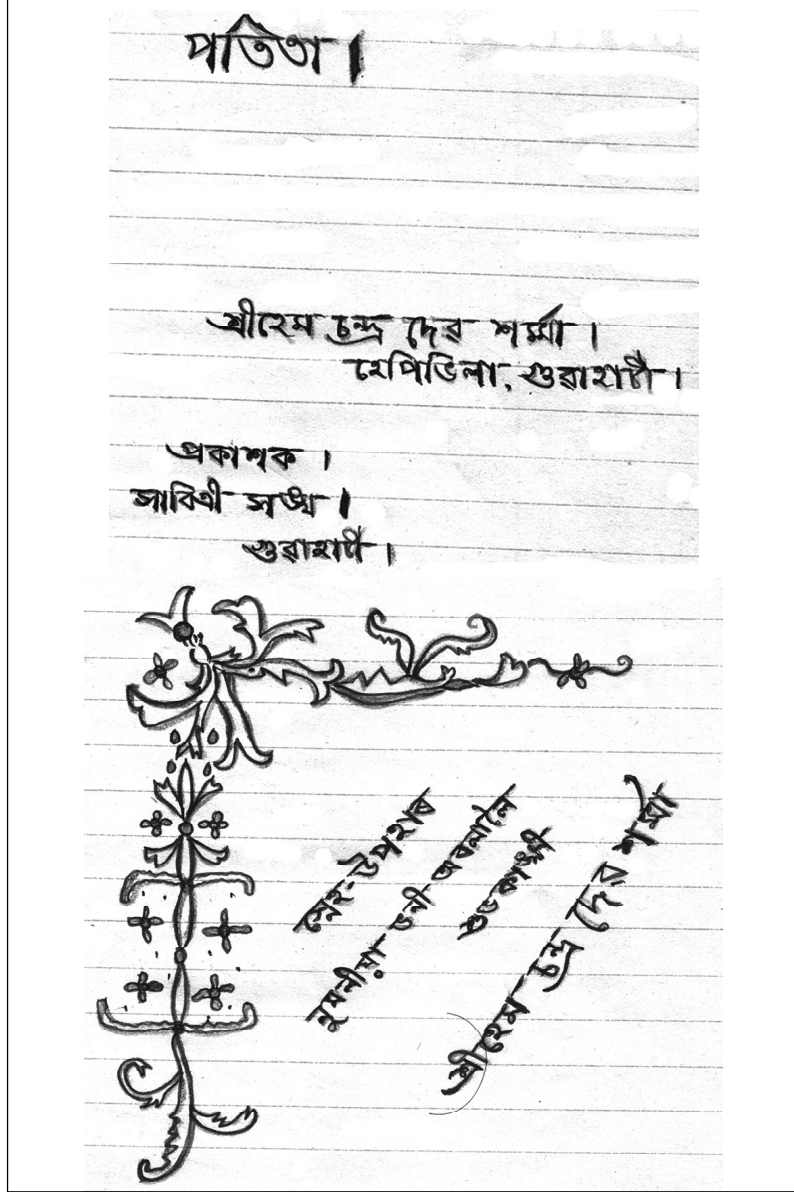 পতিতা।
শ্রীহেম চন্দ্র দেৱ শৰ্ম্মা।
হেপিভিলা, গুৱাহাটী।
প্ৰকাশক।
সাবিত্ৰী সঙ্ঘ।
গুৱাহাটী।
স্নেহ-উপহাৰ
মৰমীয়া ভনী অৱলালৈ
শুভকাঙ্ক্ষী
শ্রীহেম চন্দ্র দেৱ শৰ্ম্মা